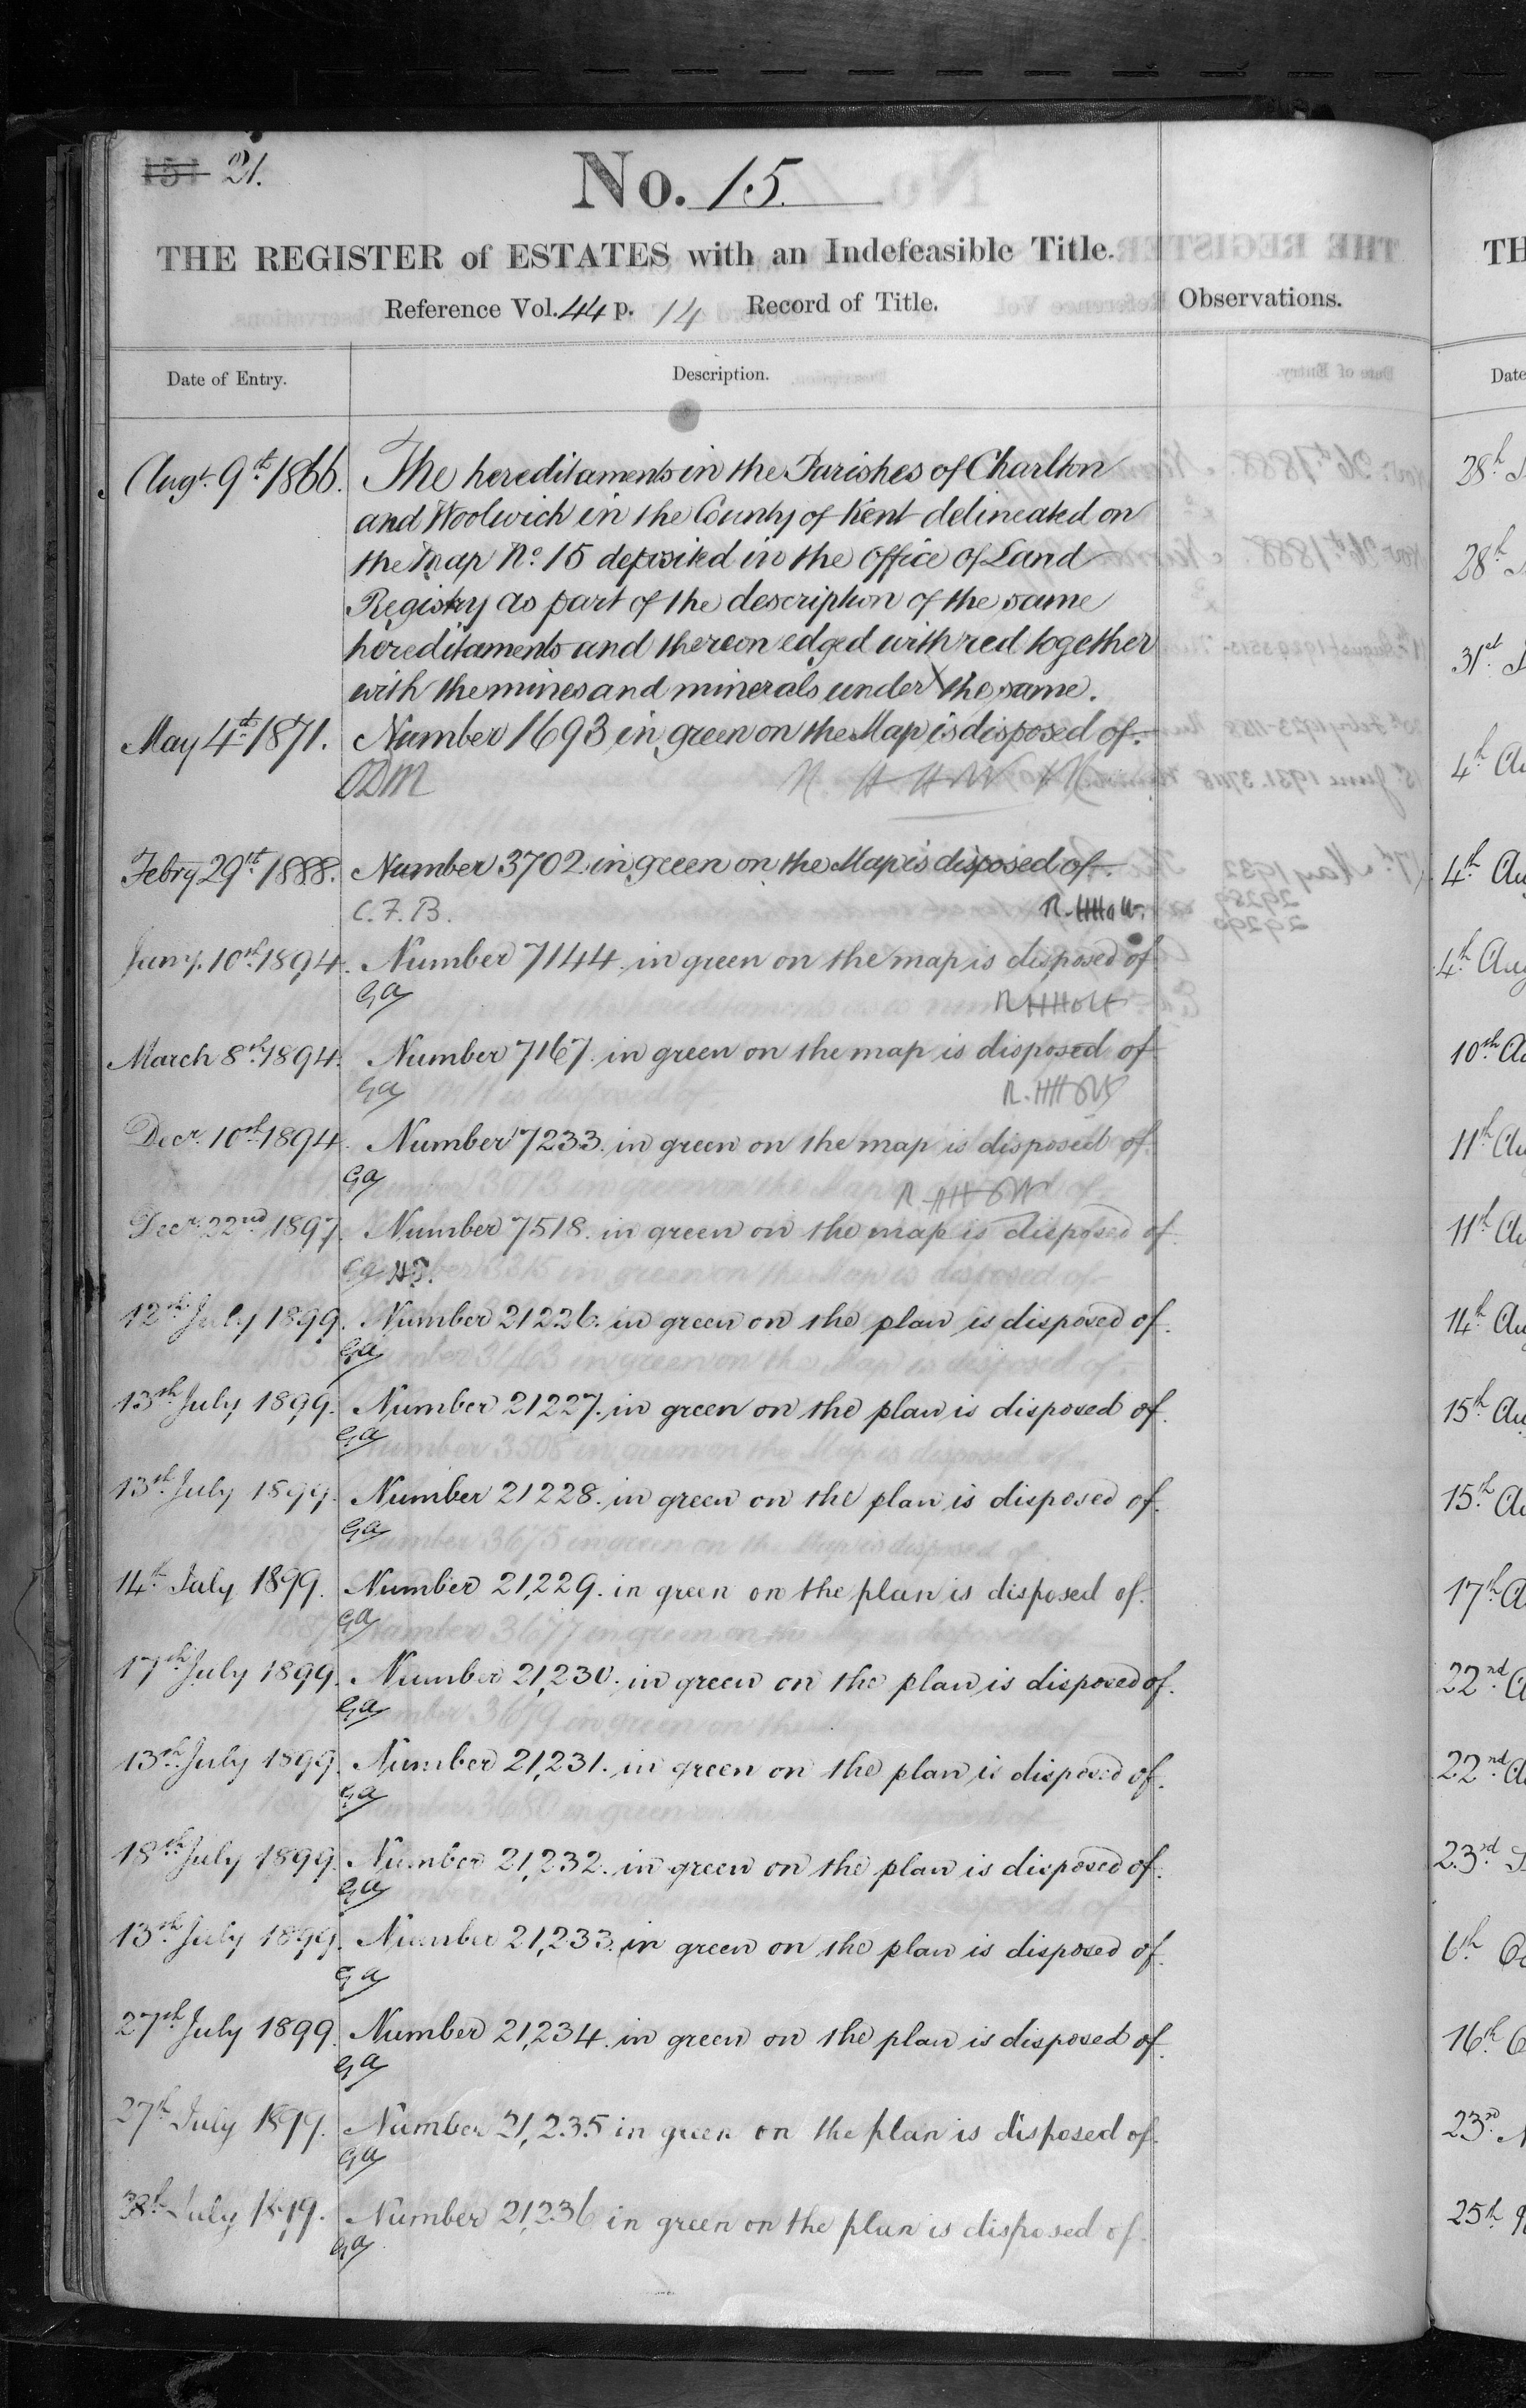 151 21.
No. 15.
THE REGISTER of ESTATES with an Indefeasible Title.
Reference Vol. 44 p. 14 Record of Title.
Observations.
Date of Entry. Description.
Augt. 9th 1866. The hereditaments in the Parishes of Charlton
and Woolwich in the County of Kent delineated on
the Map No. 15 deposited in the Office of Land
Registry as part of the description of the same
hereditaments and thereon edged with red together
with the mines and minerals under the same.
May 4th 1871. Number 1693 in green on the Map is disposed of.
ODM
Febry 29th 1888. Number 3702 in green on the Map is disposed of.
C.F.B. R. HHolt
Jany. 10th 1894. Number 7144 in green on the map is disposed of
GA R HHolt
March 8th 1894. Number 7167. in green on the map is disposed of
GA
Decr. 10th 1894. Number 7233. in green on the map is disposed of.
GA
Decr. 22nd 1897. Number 7518. in green on the map is disposed of.
GA
12th July 1899. Number 21226. in green on the plan is disposed of.
GA
13th July 1899. Number 21227. in green on the plan is disposed of.
GA
13th July 1899. Number 21228. in green on the plan is disposed of.
GA
14th July 1899. Number 21,229. in green on the plan is disposed of.
GA
17th July 1899. Number 21,230. in green on the plan is disposed of.
GA
13th July 1899. Number 21,231. in green on the plan is disposed of.
GA
18th July 1899. Number 21,232. in green on the plan is disposed of.
GA
13th July 1899. Number 21,233. in green on the plan is disposed of.
GA
27th July 1899. Number 21,234. in green on the plan is disposed of.
GA
27th July 1899. Number 21,235 in green on the plan is disposed of.
GA
July 1899. Number 21,236 in green on the plan is disposed of.
GA
TH
Date
28th
28th
31st
4th Au
4th Au
4th Aug
10th Au
11th Au
11th Au
14th Au
15th Au
15th Au
17th A
22nd A
22nd A
23rd
6th Oc
16th O
23rd N
25th